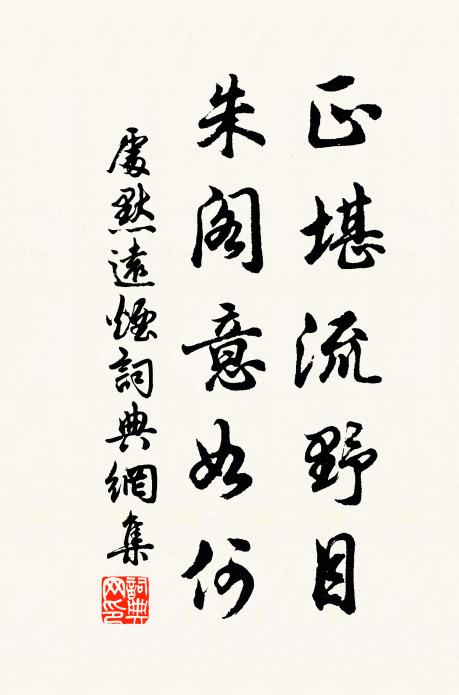 正堪流野目
朱阁意如何
處默遠煙詞典網集
詞典網印